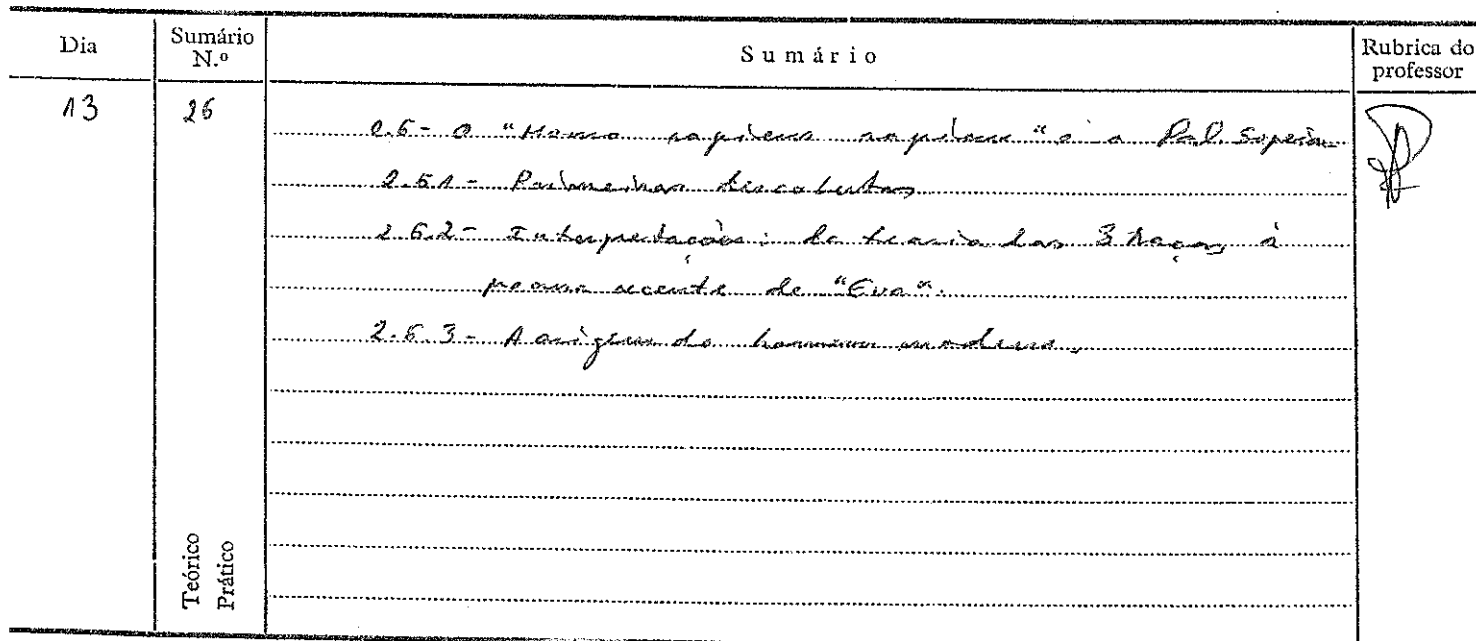 Dia Sumário N.º Sumário Rubrica do professor
13 26
2.6- O "Homo sapiens sapiens" e o Pal. Superior
2.6.1- Primeiras descobertas
2.6.2- Interpretações: da teoria das 3 raças à
recente de "Eva".
2.6.3- A origem do homem moderno.
Teórico
Prático